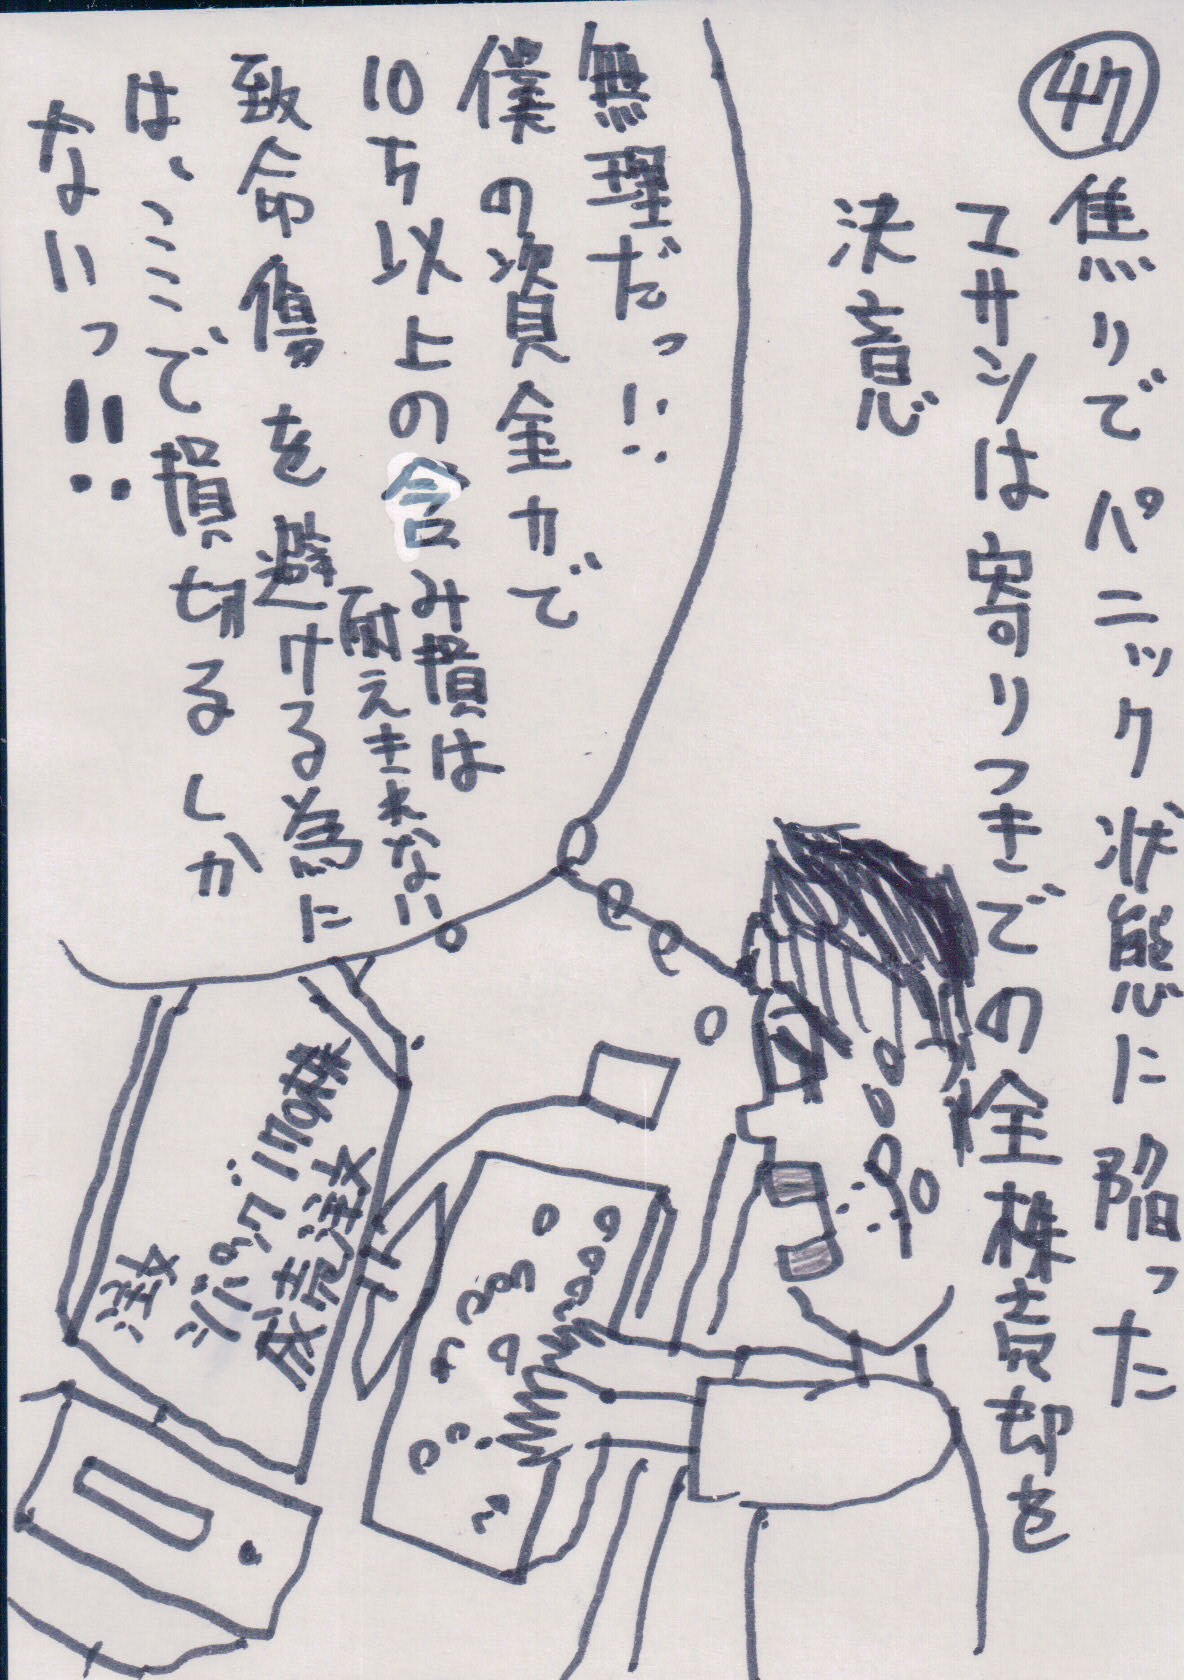 ㊼焦りでパニック状態に陥った
マサシは寄りつきでの全株売却を
決意
無理だっ!!
僕の資金力で
10万以上の含み損は
耐えきれない
致命傷を避ける為に
は、ここで損切るしか
ないっ!!
株
ジパング170株
成売注文
注文